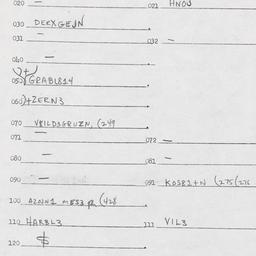 020 — 021 HNOJ
030 DECXGEJN
031 — 032 —
040 —
050 GRABL814
060 )+ZERN3
070 VRILDSGRUZN, (249
071 — 072 —
080 — 081 —
090 — 091 KOSB1+N (275(276
100 AZNN1 ME53 R (428
110 HARBL3 111 VIL3
120 $